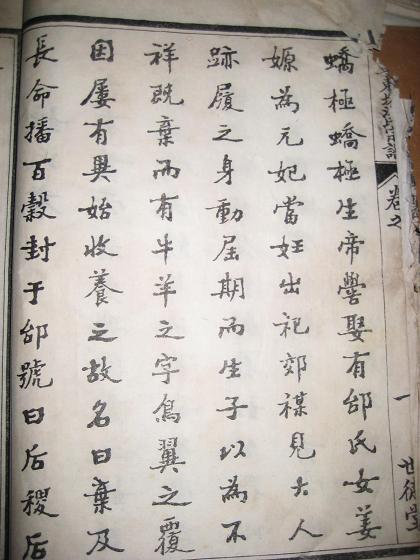 卷之
一
蟜極蟜極生帝嚳娶有邰氏女姜
嫄為元妃當妊出祀郊禖見大人
跡履之身動屆期而生子以為不
祥既棄而有牛羊之字鳥翼之覆
因屢有異始收養之故名曰棄及
長命播百穀封于邰號曰后稷后